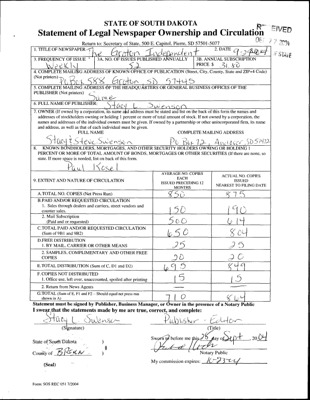 STATE OF SOUTH DAKOTA
Statement of Legal Newspaper Ownership and Circulation
Return to: Secretary of State, 500 E. Capitol, Pierre, SD 57501-5077
1. TITLE OF NEWSPAPER The Groton Independent 2. DATE
3. FREQUENCY OF ISSUE Weekly 3A. NO. OF ISSUES PUBLISHED ANNUALLY 52 3B. ANNUAL SUBSCRIPTION PRICE $
4. COMPLETE MAILING ADDRESS OF KNOWN OFFICE OF PUBLICATION (Street, City, County, State and ZIP+4 Code)
(Not printers) PO Box 588 Groton SD 57445
5. COMPLETE MAILING ADDRESS OF THE HEADQUARTERS OR GENERAL BUSINESS OFFICES OF THE
PUBLISHER (Not printers) Same
6. FULL NAME OF PUBLISHER: Stacy L Swenson
7. OWNER (If owned by a corporation, its name and address must be stated and also immediately thereafter the names and
addresses of stockholders owning or holding 1 percent or more of total amount of stock. If not owned by a corporation, the
names and addresses of the individual owners must be given. If owned by a partnership or other unincorporated firm, its name
and address, as well as that of each individual must be given.
FULL NAME COMPLETE MAILING ADDRESS
Stacy & Steve Swenson PO Box 72 Andover SD
8. KNOWN BONDHOLDERS, MORTGAGEES, AND OTHER SECURITY HOLDERS OWNING OR HOLDING 1
PERCENT OR MORE OF TOTAL AMOUNT OF BONDS, MORTGAGES OR OTHER SECURITIES (If there are none, so
state. If more space is needed, list on back of this form.
Paul Kosel
9. EXTENT AND NATURE OF CIRCULATION
AVERAGE NO. COPIES EACH ISSUED PRECEDING 12 MONTHS
ACTUAL NO. COPIES ISSUED NEAREST TO FILING DATE
A. TOTAL NO. COPIES (Net Press Run) 850 875
B. PAID AND/OR REQUESTED CIRCULATION
1. Sales through dealers and carriers, street vendors and
counter sales. 150 190
2. Mail Subscription
(Paid and or requested) 500 614
C. TOTAL PAID AND/OR REQUESTED CIRCULATION
(Sum of 9B1 and 9B2) 650 804
D. FREE DISTRIBUTION
1. BY MAIL, CARRIER OR OTHER MEANS 25 25
2. SAMPLES, COMPLIMENTARY AND OTHER FREE
COPIES 20 20
E. TOTAL DISTRIBUTION (Sum of C, D1 and D2) 695 849
F. COPIES NOT DISTRIBUTED
1. Office use, left over, unaccounted, spoiled after printing 15 15
2. Return from News Agents
G. TOTAL (Sum of E, F1 and F2 - Should equal net press run
shown in A) 710 864
Statement must be signed by Publisher, Business Manager, or Owner in the presence of a Notary Public
I swear that the statements made by me are true, correct, and complete:
Stacy L Swenson Publisher - Editor
(Signature) (Title)
State of South Dakota )
County of Brown )
Sworn to before me this day of Sept 2004
Notary Public
(Seal) My commission expires:
Form: SOS REC 051 7/2004